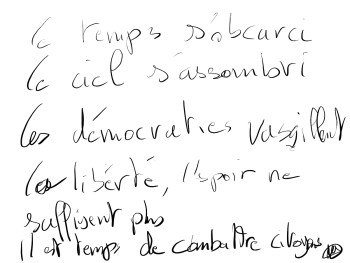 Le temps s'obcurci
Le ciel s'assombri
Les démocraties vasgillent
La liberté, l'spoir ne
suffisent plus
Il est temps de combattre citoyens